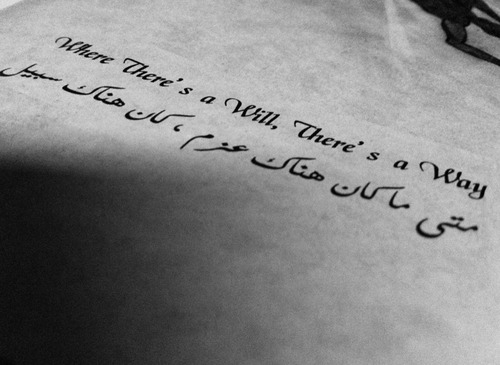 Where There's a Will, There's a Way
متى ما كان هناك عزم ، كان هناك سبيل